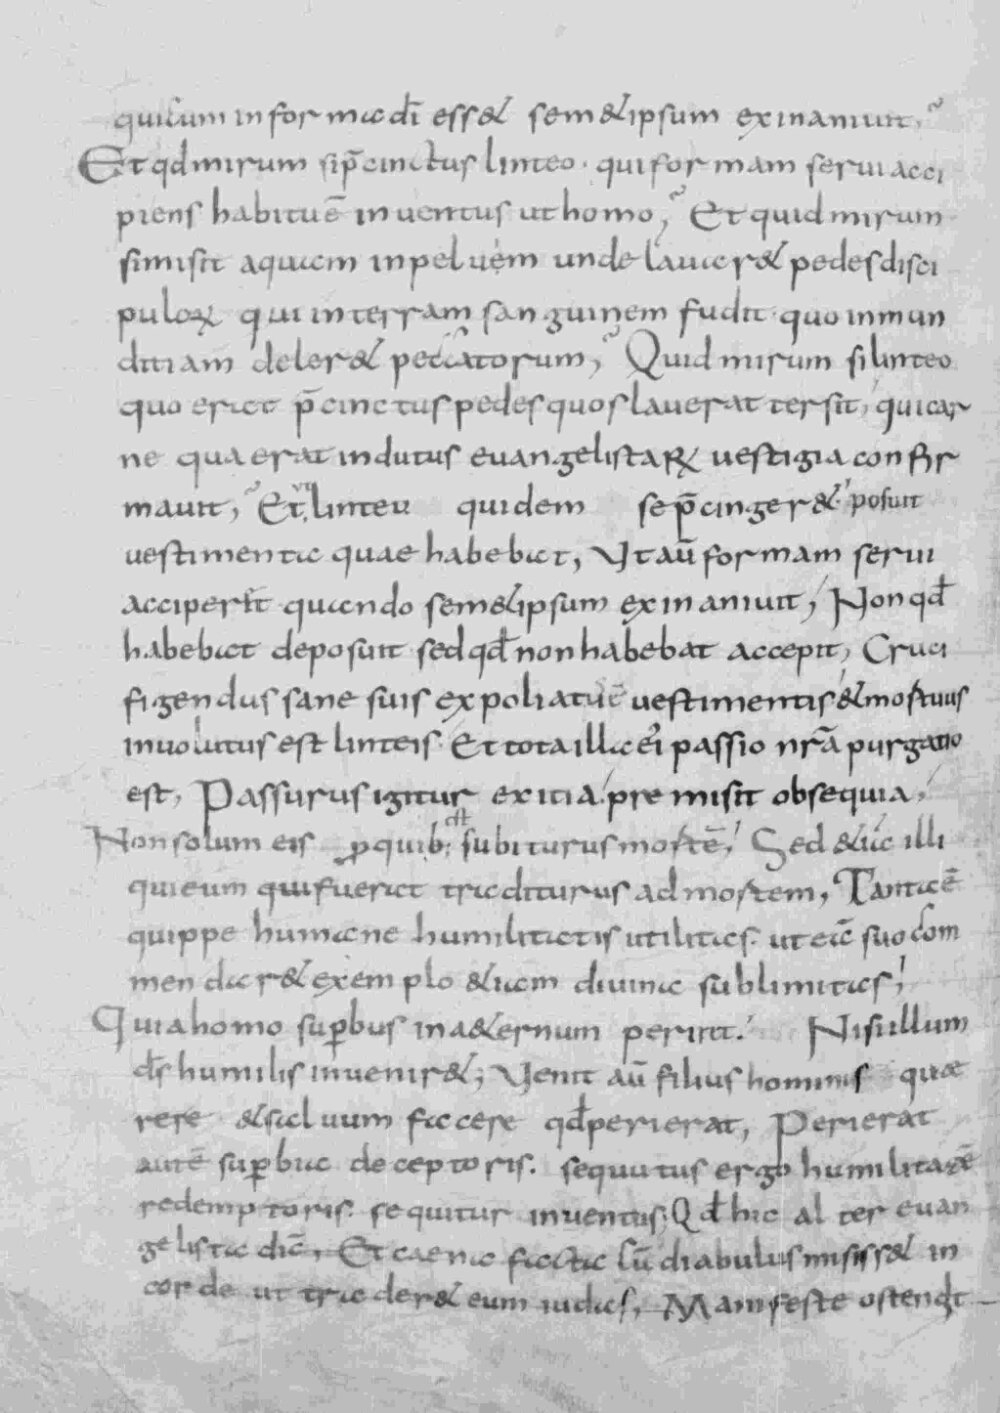 qui cum in forma dī ess& sem&ipsum exinanivit,
Et qd mirum si p̄cinctus linteo· qui formam servi acci
piens habitu ē inventus ut homo, Et quid mirum
si misit aquam in peluem unde lavar& pedes disci
puloꝝ qui in terram sanguinem fudit· quo inmun
ditiam deler& peccatorum, Quid mirum si linteo
quo erat p̄cinctus pedes quos laverat tersit, qui car
ne qua erat indutus evangelistaꝝ vestigia confir
mavit, Et linteu quidem se p̄cinger& posuit
vestimenta quae habebat, Ut aū formam servi
acciperet quando sem&ipsum exinanivit, Non qđ
habebat deposuit sed qđ non habebat accepit, Cruci
figendus sane suis expoliatus ē vestimentis & mortuus
involutus est linteis· Et tota illa ei passio nrā purgatio
est, Passurus igitur exitia premisit obsequia,
Non solum eis ꝓ quib; subiturus mortē, Sed & iā illi
qui eum qui fuerat traditurus ad mortem, Tanta ē
quippe humane humilitatis utilitas· ut eā suo com
mendar& exemplo &iam divina sublimitas,
Quia homo suꝑbus in a&ernum perir&· Nisi illum
d̄s humilis invenir&; Venit aū filius hominis quae
rere & salvum facere qđ perierat, Perierat
autē suꝑbia deceptoris· sequutus ergo humilitatē
redemptoris· sequitur inventus· Qđ hic alter evan
gelista dic̄, Et caena facta cū diabulus misiss& in
corde ut trader& eum iudas, Manifeste ostendit